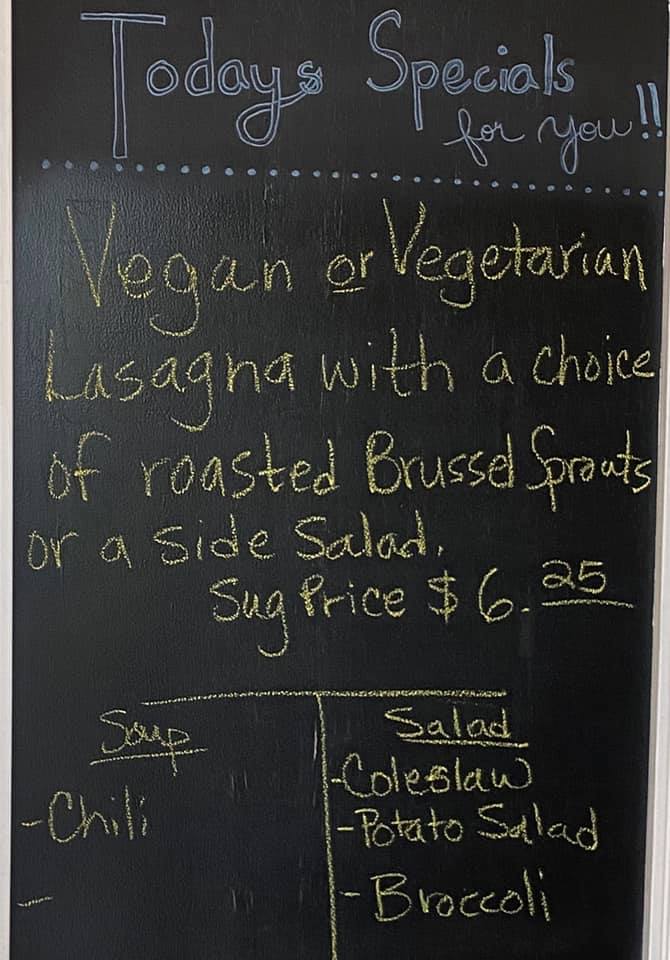 Todays Specials
for you!!
Vegan or Vegetarian
Lasagna with a choice
of roasted Brussel Sprouts
or a Side Salad.
Sug Price $6.25
Soup
- Chili
-
Salad
- Coleslaw
- Potato Salad
- Broccoli